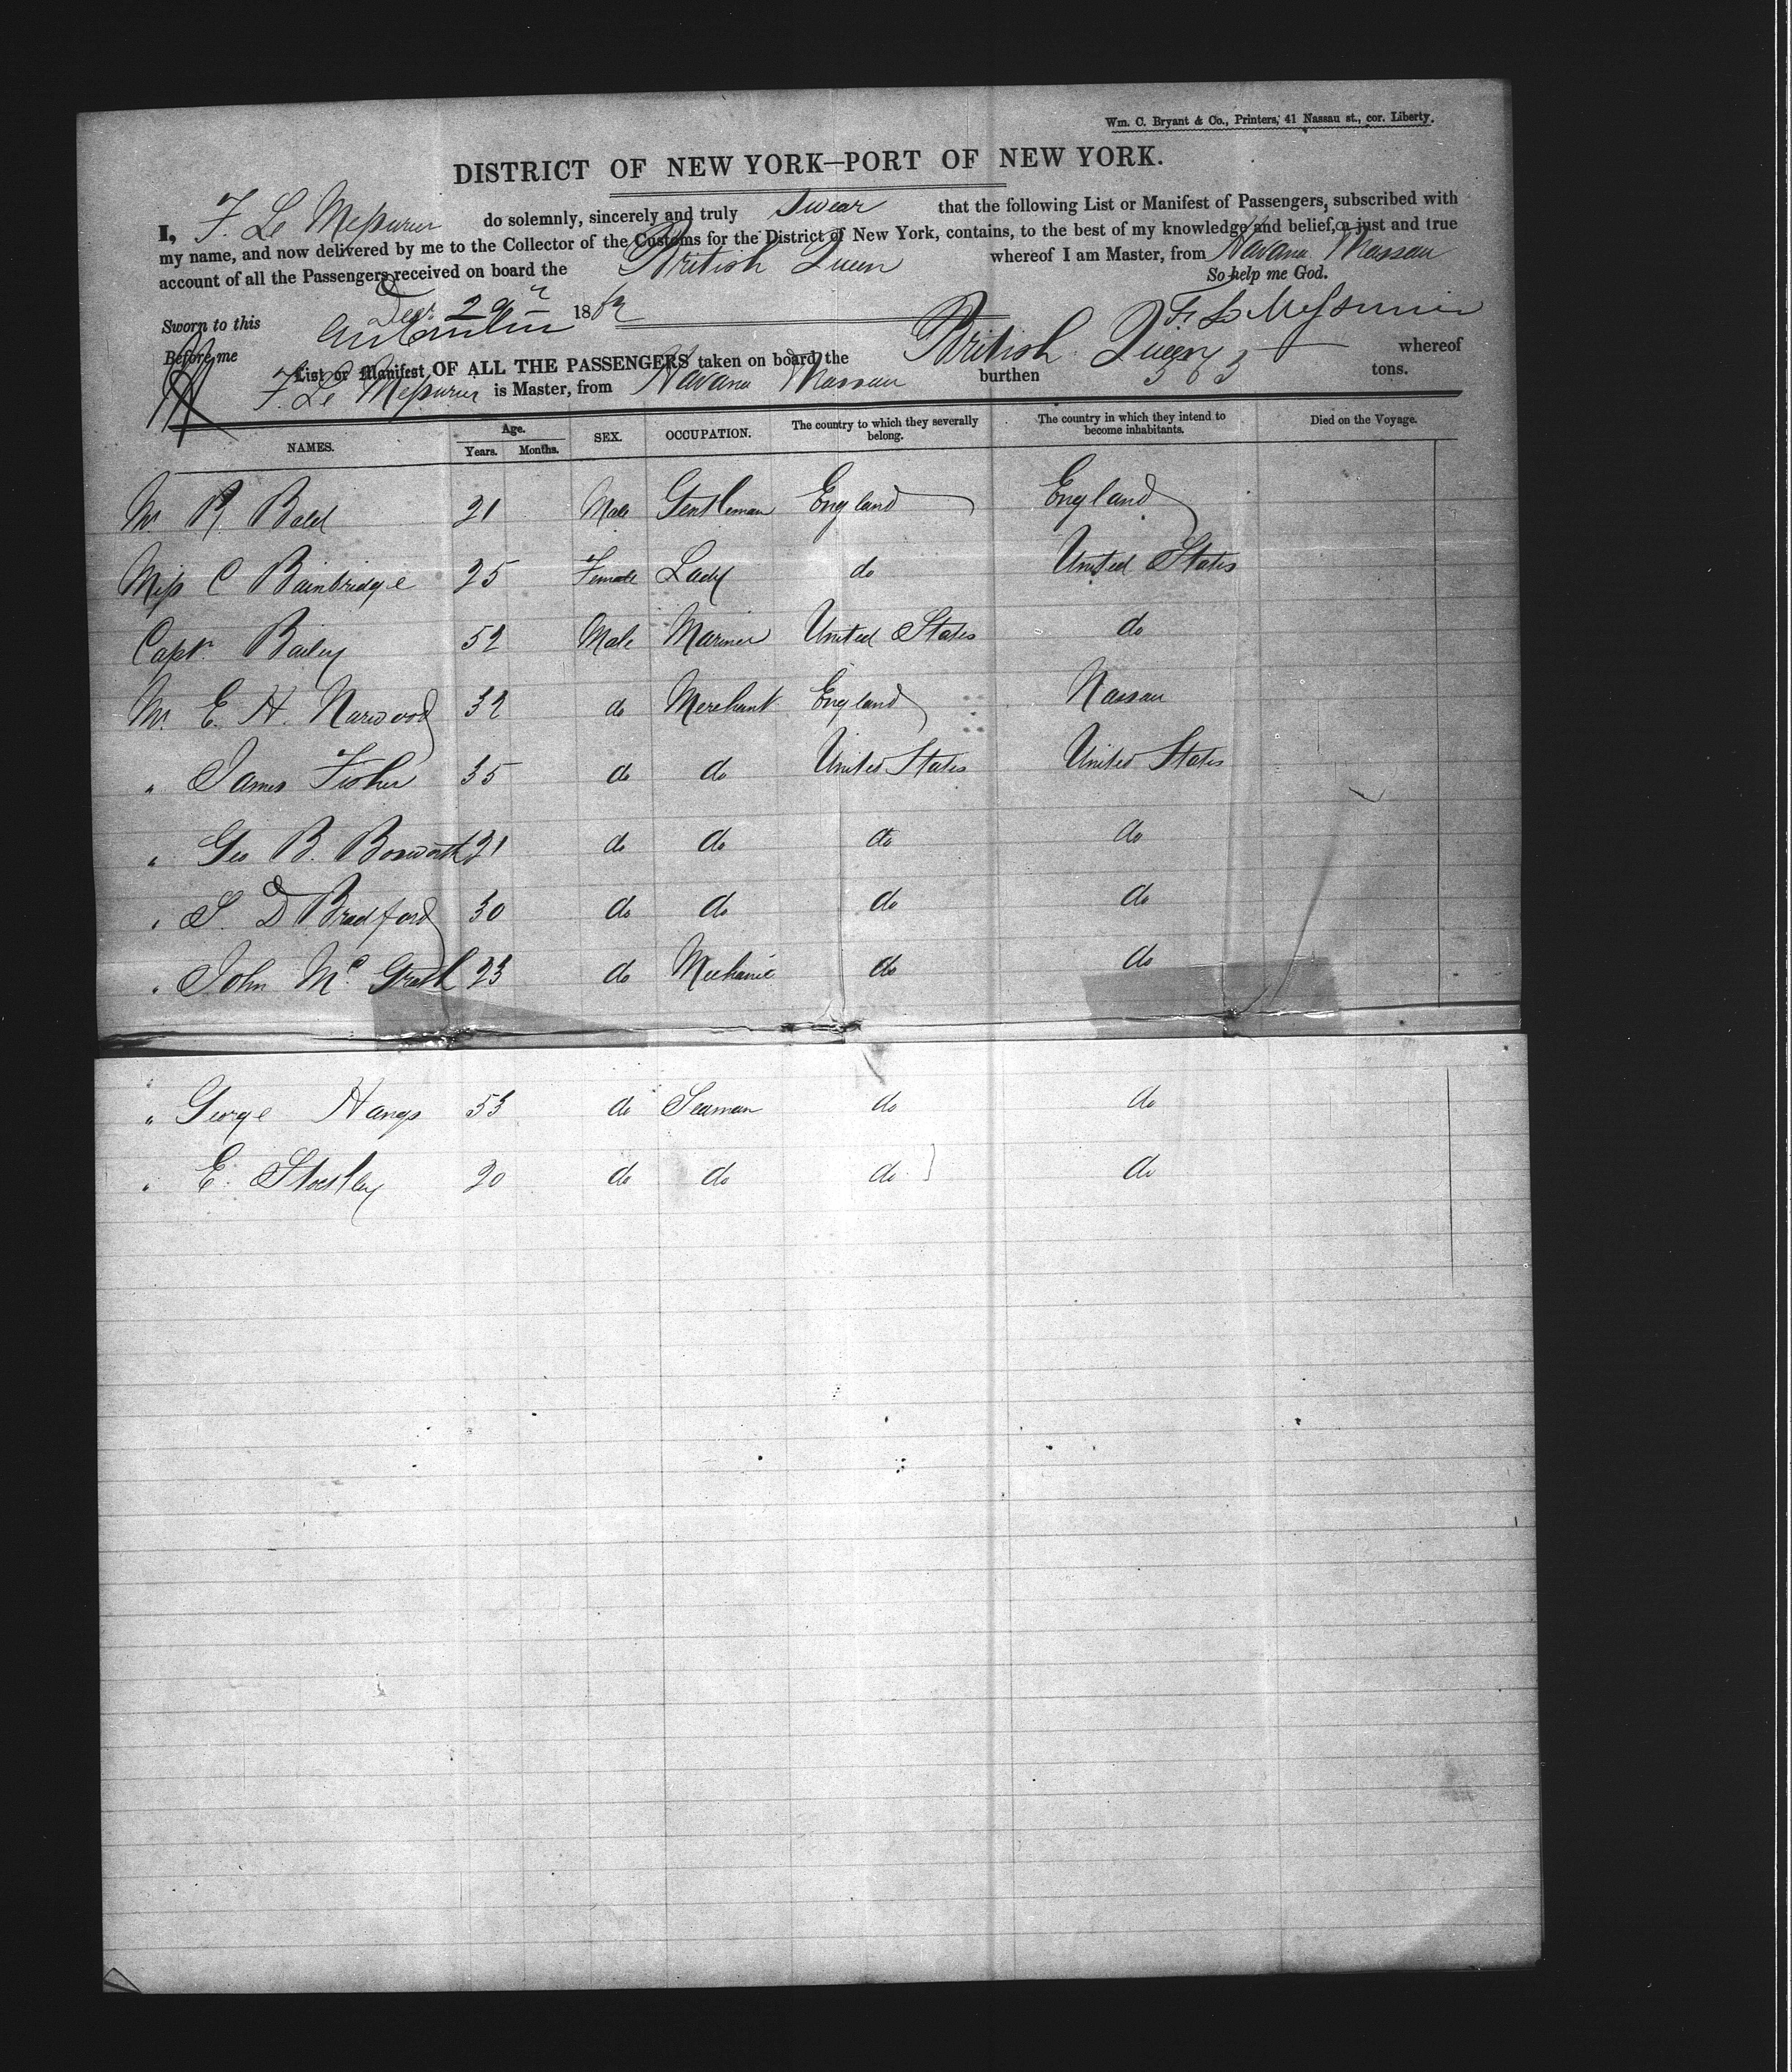 Wm. C. Bryant & Co., Printers, 41 Nassau st., cor. Liberty.
DISTRICT OF NEW YORK—PORT OF NEW YORK.
I, F. Le Messurier do solemnly, sincerely and truly Swear that the following List or Manifest of Passengers, subscribed with
my name, and now delivered by me to the Collector of the Customs for the District of New York, contains, to the best of my knowledge and belief, a just and true
account of all the Passengers received on board the British Queen whereof I am Master, from Havana & Nassau
So help me God.
Sworn to this Decr 29th 1862 F. Le Messurier
Before me
List or Manifest OF ALL THE PASSENGERS taken on board the British Queen whereof
F. Le Messurier is Master, from Havana & Nassau burthen 363 tons.
NAMES. Age. Years. Months. SEX. OCCUPATION. The country to which they severally belong. The country in which they intend to become inhabitants. Died on the Voyage.
Mr R Bald 21 Male Gentleman England England
Miss C Bainbridge 25 Female Lady do United States
Capt. Bailey 52 Male Mariner United States do
Mr. E. H. Narwood 32 do Merchant England Nassau
" James Fisher 35 do do United States United States
" Geo B. Bosworth 21 do do do do
" S. D Bradford 30 do do do do
" John Mc Grath 23 do Mechanic do do
" George Hangs 53 do Seaman do do
" E. 20 do do do do